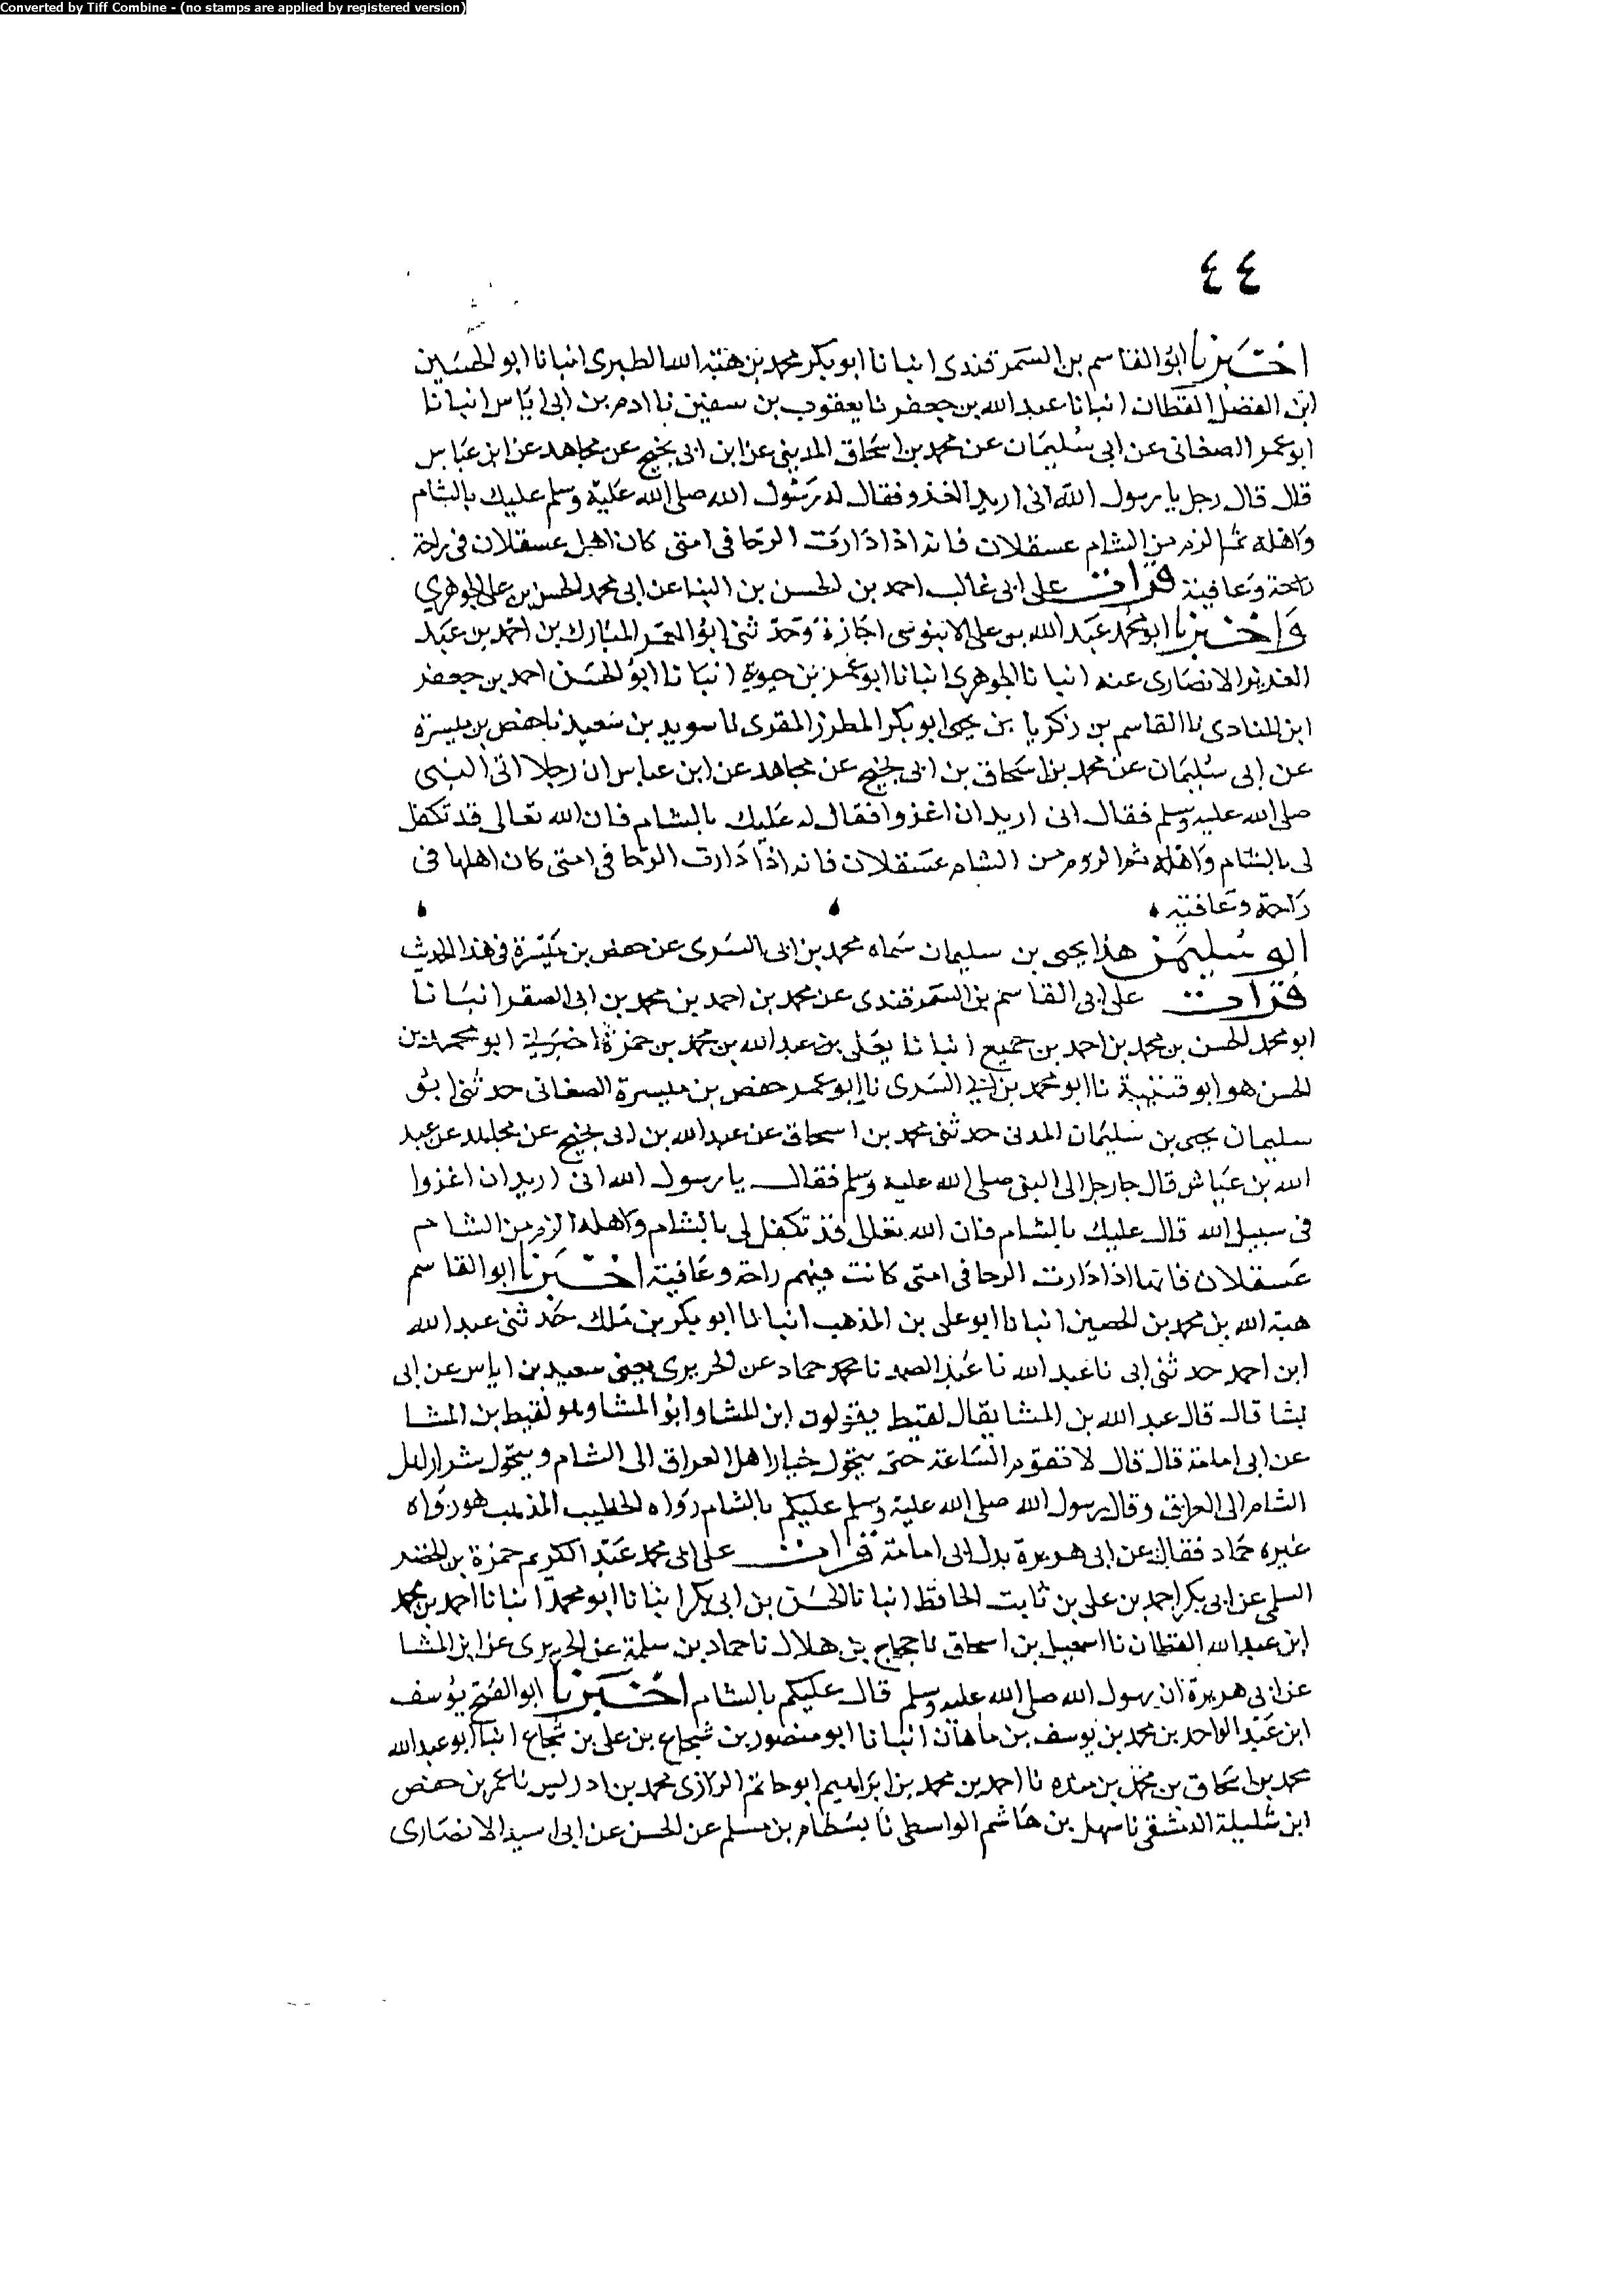 Converted by Tiff Combine - (no stamps are applied by registered version)
٤٤
اخبرنا ابو القاسم بن السمرقندى انبانا ابو بكر محمد بن هبة الله الطبرى انبانا ابو الحسين
ابن الفضل القطان انبانا عبد الله بن جعفر نا يعقوب بن سفين نا ادم بن ابى اياس انبانا
ابو عمر الصغانى عن ابى سليمان عن محمد بن اسحاق المدينى عن ابن ابى نجيح عن مجاهد عن ابن عباس
قال قال رجل يا رسول الله انى اريد الغزو فقال له رسول الله صلى الله عليه وسلم عليك بالشام
واهله ثم الزم من الشام عسقلان فانه اذا دارت الرحا فى امتى كان اهل عسقلان فى راحة
راحة وعافية قرات على ابى غالب احمد بن الحسن بن البنا عن ابى محمد الحسن بن على الجوهري
واخبرنا ابو محمد عبد الله بن على الابنوسى اجازة وحدثنى ابو المعمر المبارك بن احمد بن عبد
العزيز الانصارى عنه انبانا الجوهرى انبانا ابو عمر بن حيوية انبانا ابو الحسن احمد بن جعفر
ابن المنادى نا القاسم بن زكريا بن يحيى ابو بكر المطرز المقرى نا سويد بن سعيد نا حفص بن ميسرة
عن ابى سليمان عن محمد بن اسحاق بن ابى نجيح عن مجاهد عن ابن عباس ان رجلا اتى النبى
صلى الله عليه وسلم فقال انى اريد ان اغزوا فقال له عليك بالشام فان الله تعالى قد تكفل
لى بالشام واهله ثم الزم من الشام عسقلان فانه اذا دارت الرحا فى امتى كان اهلها فى
راحة وعافية
ابو سليمن هذا يحيى بن سليمان سماه محمد بن ابى السرى عن حفص بن ميسرة فى هذا الحديث
قرات على ابى القاسم بن السمرقندى عن محمد بن احمد بن محمد بن ابى الصقر انبانا
ابو محمد الحسن بن محمد بن احمد بن جميع انبانا يعلى بن عبد الله بن محمد بن حمزة ابو محمد بن
الحسن هو ابو قتيبة نا ابو محمد بن ابى السرى نا ابو عمر حفص بن ميسرة الصغانى حدثنى ابو
سليمان يحيى بن سليمان المدنى حدثنى محمد بن اسحاق عن عبد الله بن ابى نجيح عن مجاهد عن عبد
الله بن عباس قال جا رجل الى النبى صلى الله عليه وسلم فقال يا رسول الله انى اريد ان اغزوا
فى سبيل الله قال عليك بالشام فان الله تعالى قد تكفل لى بالشام واهله الزم من الشام
عسقلان فانها اذا دارت الرحا فى امتى كانت فيهم راحة وعافية اخبرنا ابو القاسم
هبة الله بن محمد بن الحصين انبانا ابو على بن المذهب انبانا ابو بكر بن ملك حدثنى عبد الله
ابن احمد حدثنى ابى نا عبد الله نا عبد الصمد نا محمد حماد عن الجريرى يعنى سعيد بن اياس عن ابى
لمشا قال قال عبد الله بن المشا يقال لقيط يقولون ابن المشا وابو المشا وهو لقيط بن المشا
عن ابى امامة قال قال لا تقوم الساعة حتى يتحول خيار اهل العراق الى الشام ويتحول شرار اهل
الشام الى العراق وقال رسول الله صلى الله عليه وسلم عليكم بالشام رواه الخطيب المذهب هو رواه
غيره حماد فقال عن ابى هريرة بدل ابى امامة قرات على ابى محمد عبد الكريم حمزة بن الخضر
السلمى عن ابى بكر احمد بن على بن ثابت الحافظ انبانا الحسن بن ابى بكر انبانا ابو محمد انبانا احمد بن محمد
ابن عبد الله القطان نا اسمعيل بن اسحاق نا حجاج بن هلال نا حماد بن سلمة عن الجريرى عن ابن المشا
عن ابى هريرة ان رسول الله صلى الله عليه وسلم قال عليكم بالشام اخبرنا ابو الفتح يوسف
ابن عبد الواحد بن محمد بن يوسف بن ماهان انبانا ابو منصور بن شجاع بن على بن شجاع انبا ابو عبد الله
محمد بن اسحاق بن محمد بن منده نا احمد بن محمد بن ابراهيم ابو حاتم الرازى محمد بن ادريس نا عمر بن حفص
ابن شليلة الدمشقى نا سهل بن هاشم الواسطى نا بسطام بن مسلم عن الحسن عن ابى اسيد الانصارى